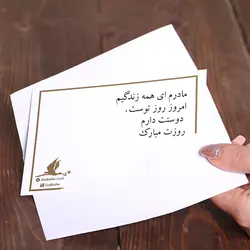 مادرم ای همه زندگیم
امروز روز توست.
دوستت دارم
روزت مبارک